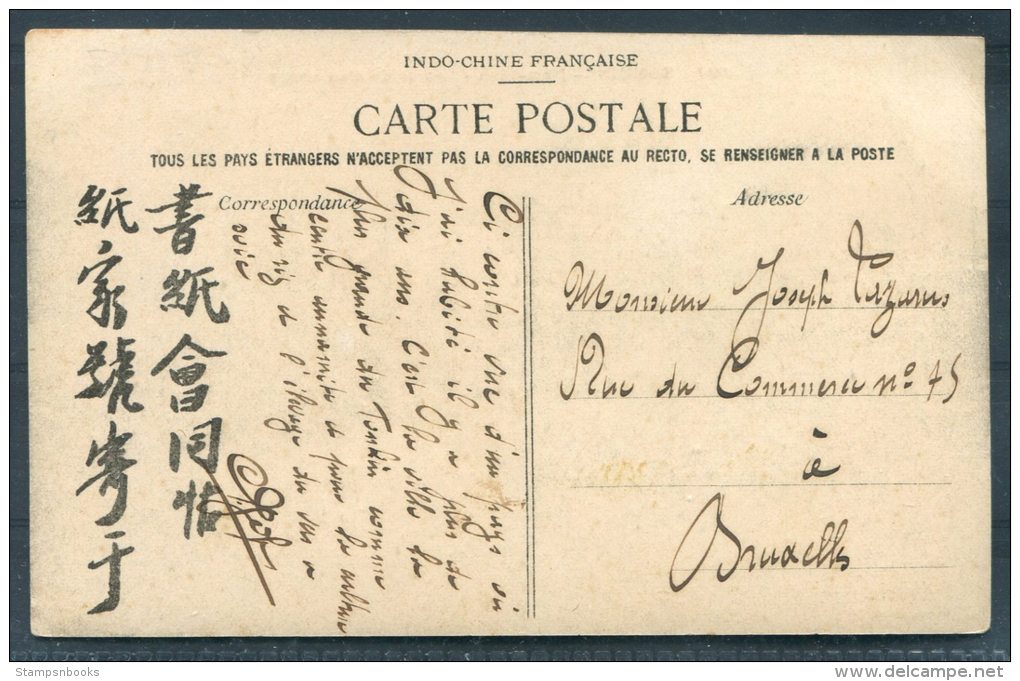 INDO-CHINE FRANÇAISE
CARTE POSTALE
TOUS LES PAYS ÉTRANGERS N'ACCEPTENT PAS LA CORRESPONDANCE AU RECTO, SE RENSEIGNER A LA POSTE
Correspondance
Adresse
書紙會同帖
紙家號寄于
Ci contre vue d'un pays où
j'ai habité il y a plus de
dix ans. C'est la ville la
plus grande du Tonkin comme
centre annamite et pour la culture
du riz et l'élevage du ver à
soie
Monsieur Joseph Lazarus
Rue du Commerce nº 45
à
Bruxelles
Stampsnbooks
www.delcampe.net